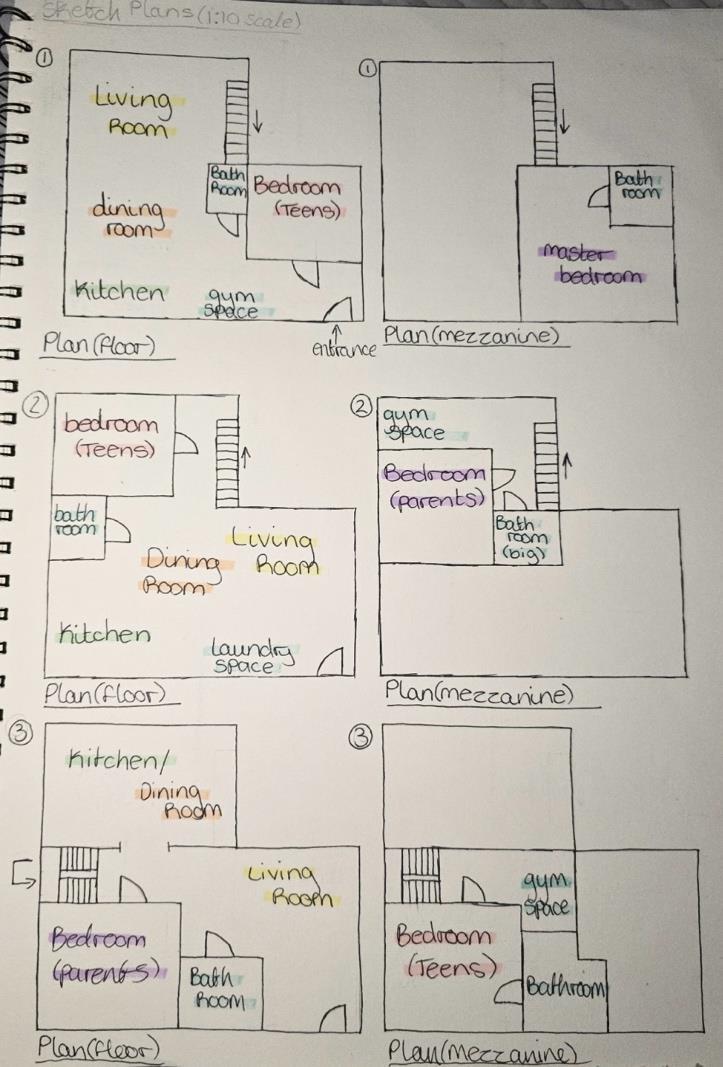 Sketch Plans (1:10 scale)
①
Living
Room
Bath
Room
Bedroom
(Teens)
dining
room
Kitchen
gym
space
Plan (floor)
entrance
①
Bath
room
master
bedroom
Plan (mezzanine)
②
bedroom
(Teens)
bath
room
Living
Room
Dining
Room
Kitchen
Laundry
space
Plan (floor)
②
gym
space
Bedroom
(parents)
Bath
room
(big)
Plan (mezzanine)
③
Kitchen/
Dining
Room
Living
Room
Bedroom
(parents)
Bath
Room
Plan (floor)
③
gym
space
Bedroom
(Teens)
Bathroom
Plan (mezzanine)